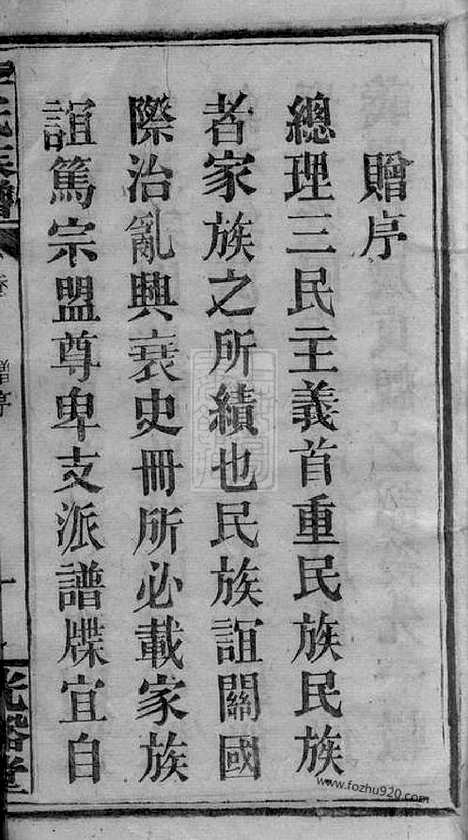 贈序
總理三民主義首重民族民族
者家族之所績也民族誼關國
際治亂興衰史冊所必載家族
誼篤宗盟尊卑支派譜牒宜自
氏族譜
贈序
光裕堂
www.fozhu920.com